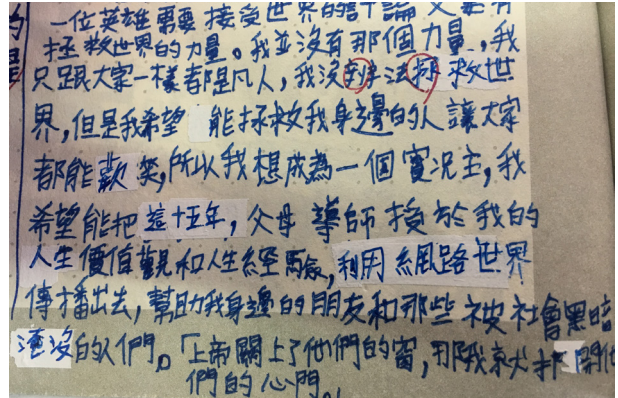 一位英雄需要接受世界的評論又要有
拯救世界的力量。我並沒有那個力量,我
只跟大家一樣都是凡人,我沒辦法拯救世
界,但是我希望能拯救我身邊的人讓大家
都能歡樂,所以我想成為一個實況主,我
希望能把這十五年,父母導師授於我的
人生價值觀和人生經驗,利用網路世界
傳播出去,幫助我身邊的朋友和那些被社會黑暗
淹沒的人們。「上帝關上了他們的窗,那我就打開他
們的心門。